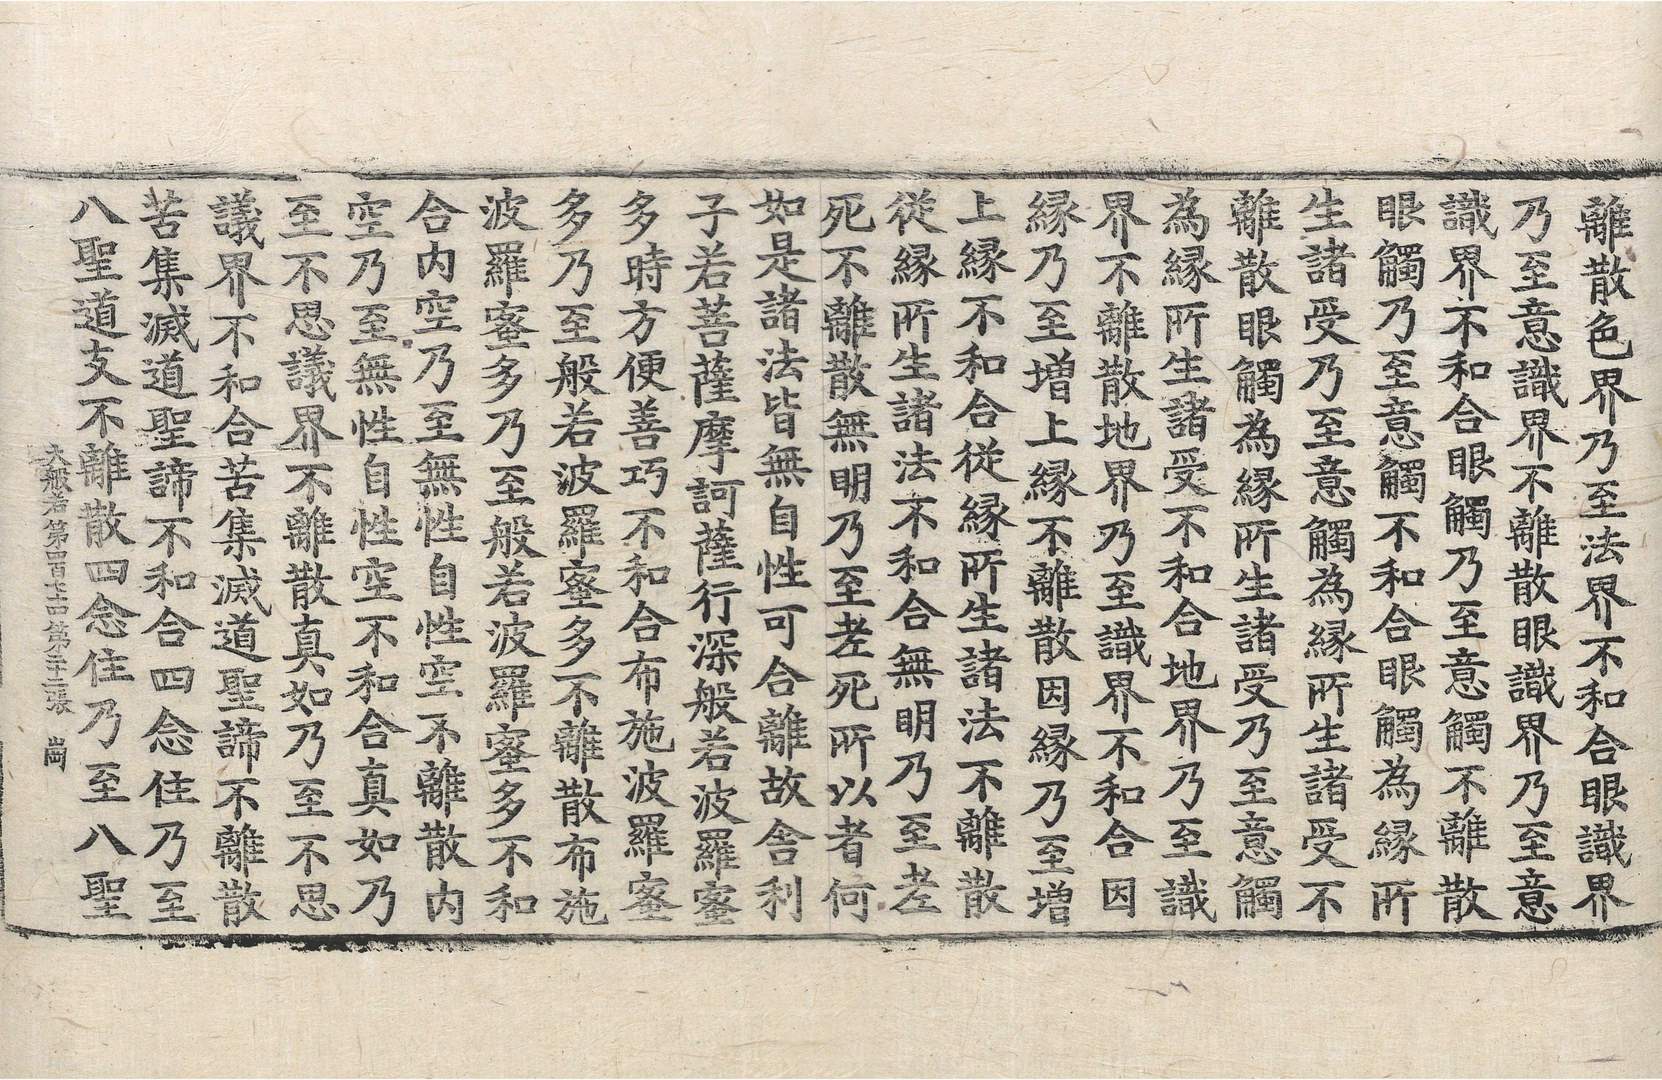 離散色界乃至法界不和合眼識界
乃至意識界不離散眼識界乃至意
識界不和合眼觸乃至意觸不離散
眼觸乃至意觸不和合眼觸為緣所
生諸受乃至意觸為緣所生諸受不
離散眼觸為緣所生諸受乃至意觸
為緣所生諸受不和合地界乃至識
界不離散地界乃至識界不和合因
緣乃至增上緣不離散因緣乃至增
上緣不和合從緣所生諸法不離散
從緣所生諸法不和合無明乃至老
死不離散無明乃至老死所以者何
如是諸法皆無自性可合離故舍利
子若菩薩摩訶薩行深般若波羅蜜
多時方便善巧不和合布施波羅蜜
多乃至般若波羅蜜多不離散布施
波羅蜜多乃至般若波羅蜜多不和
合內空乃至無性自性空不離散內
空乃至無性自性空不和合真如乃
至不思議界不離散真如乃至不思
議界不和合苦集滅道聖諦不離散
苦集滅道聖諦不和合四念住乃至
八聖道支不離散四念住乃至八聖
大般若第四百六十四 第張 崗